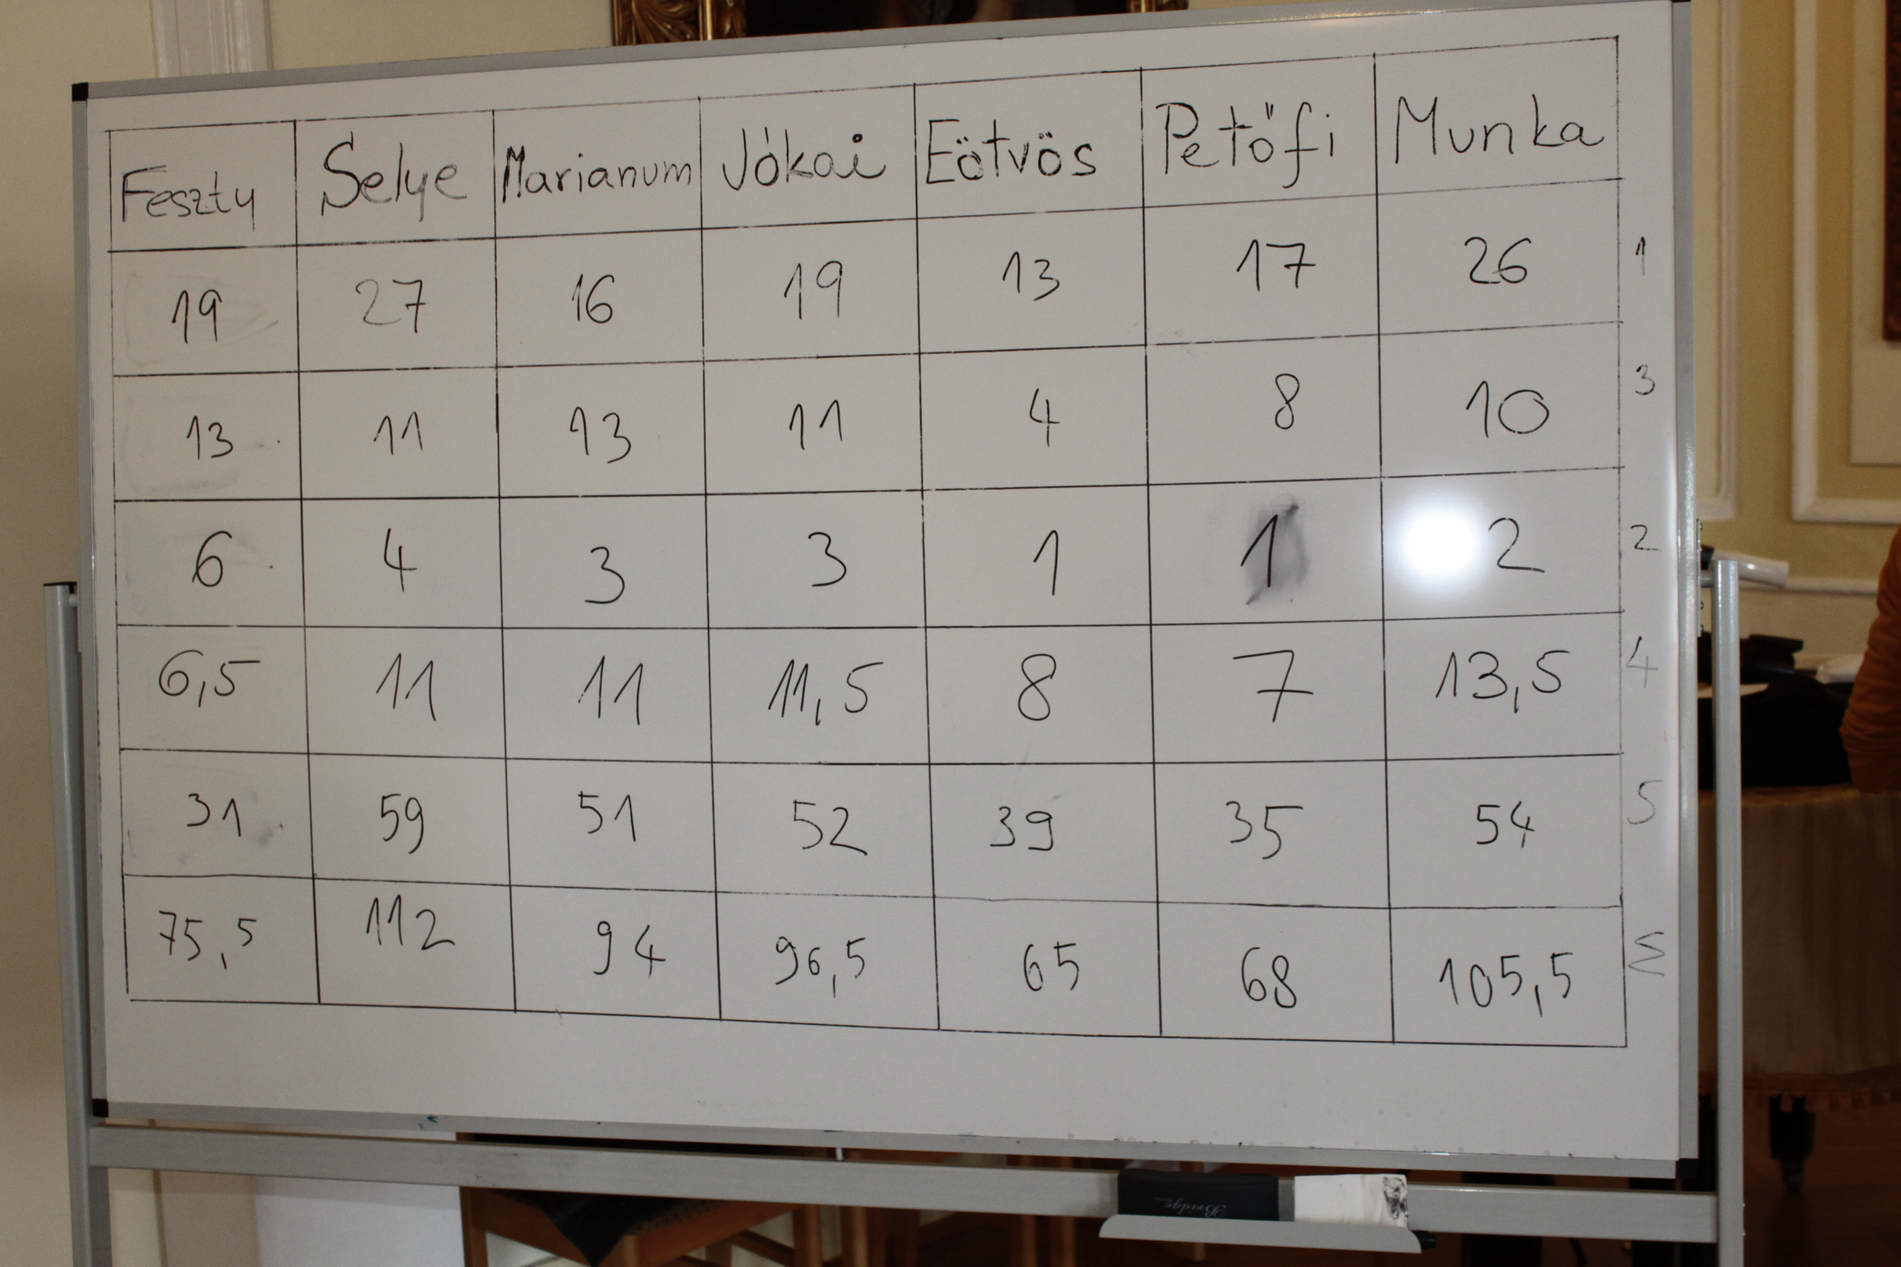 Feszty Selye Marianum Jókai Eötvös Petőfi Munka
19 27 16 19 13 17 26 1
13 11 13 11 4 8 10 3
6 4 3 3 1 1 2 2
6,5 11 11 11,5 8 7 13,5 4
31 59 51 52 39 35 54 5
75,5 112 94 96,5 65 68 105,5 Σ
Bridge